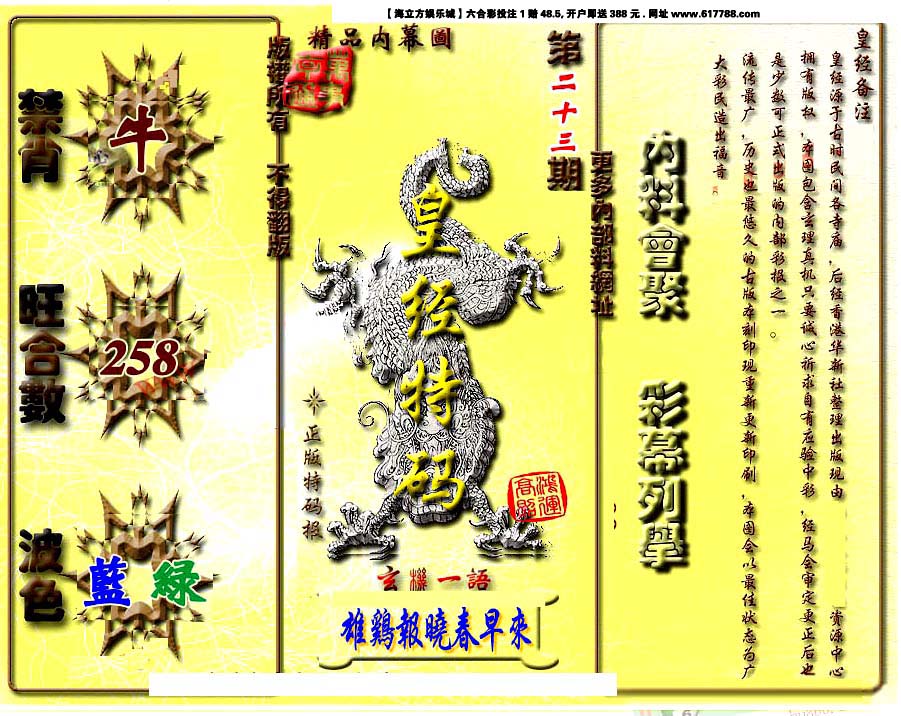 【海立方娱乐城】六合彩投注1赔48.5,开户即送388元.网址 www.617788.com
皇经备注
皇经源于古时民间各寺庙,后经香港华新社整理出版现由 资源中心
拥有版权,本图包含玄理真机只要诚心祈求自有应验中彩,经马会审定更正后也
是少数可正式出版的内部彩报之一。
流传最广,历史也最悠久的古版本刻印现重新更新印刷,本图会以最佳状态为广
大彩民造出福音
内料會聚 彩幕列學
更多內部料網址
第二十三期
精品内幕圖
皇经特码
正版特码报
鴻運高照
玄機一語
雄鷄報曉春早來
版權所有 不得翻版
禁肖
牛
旺合數
258
波色
藍 緑